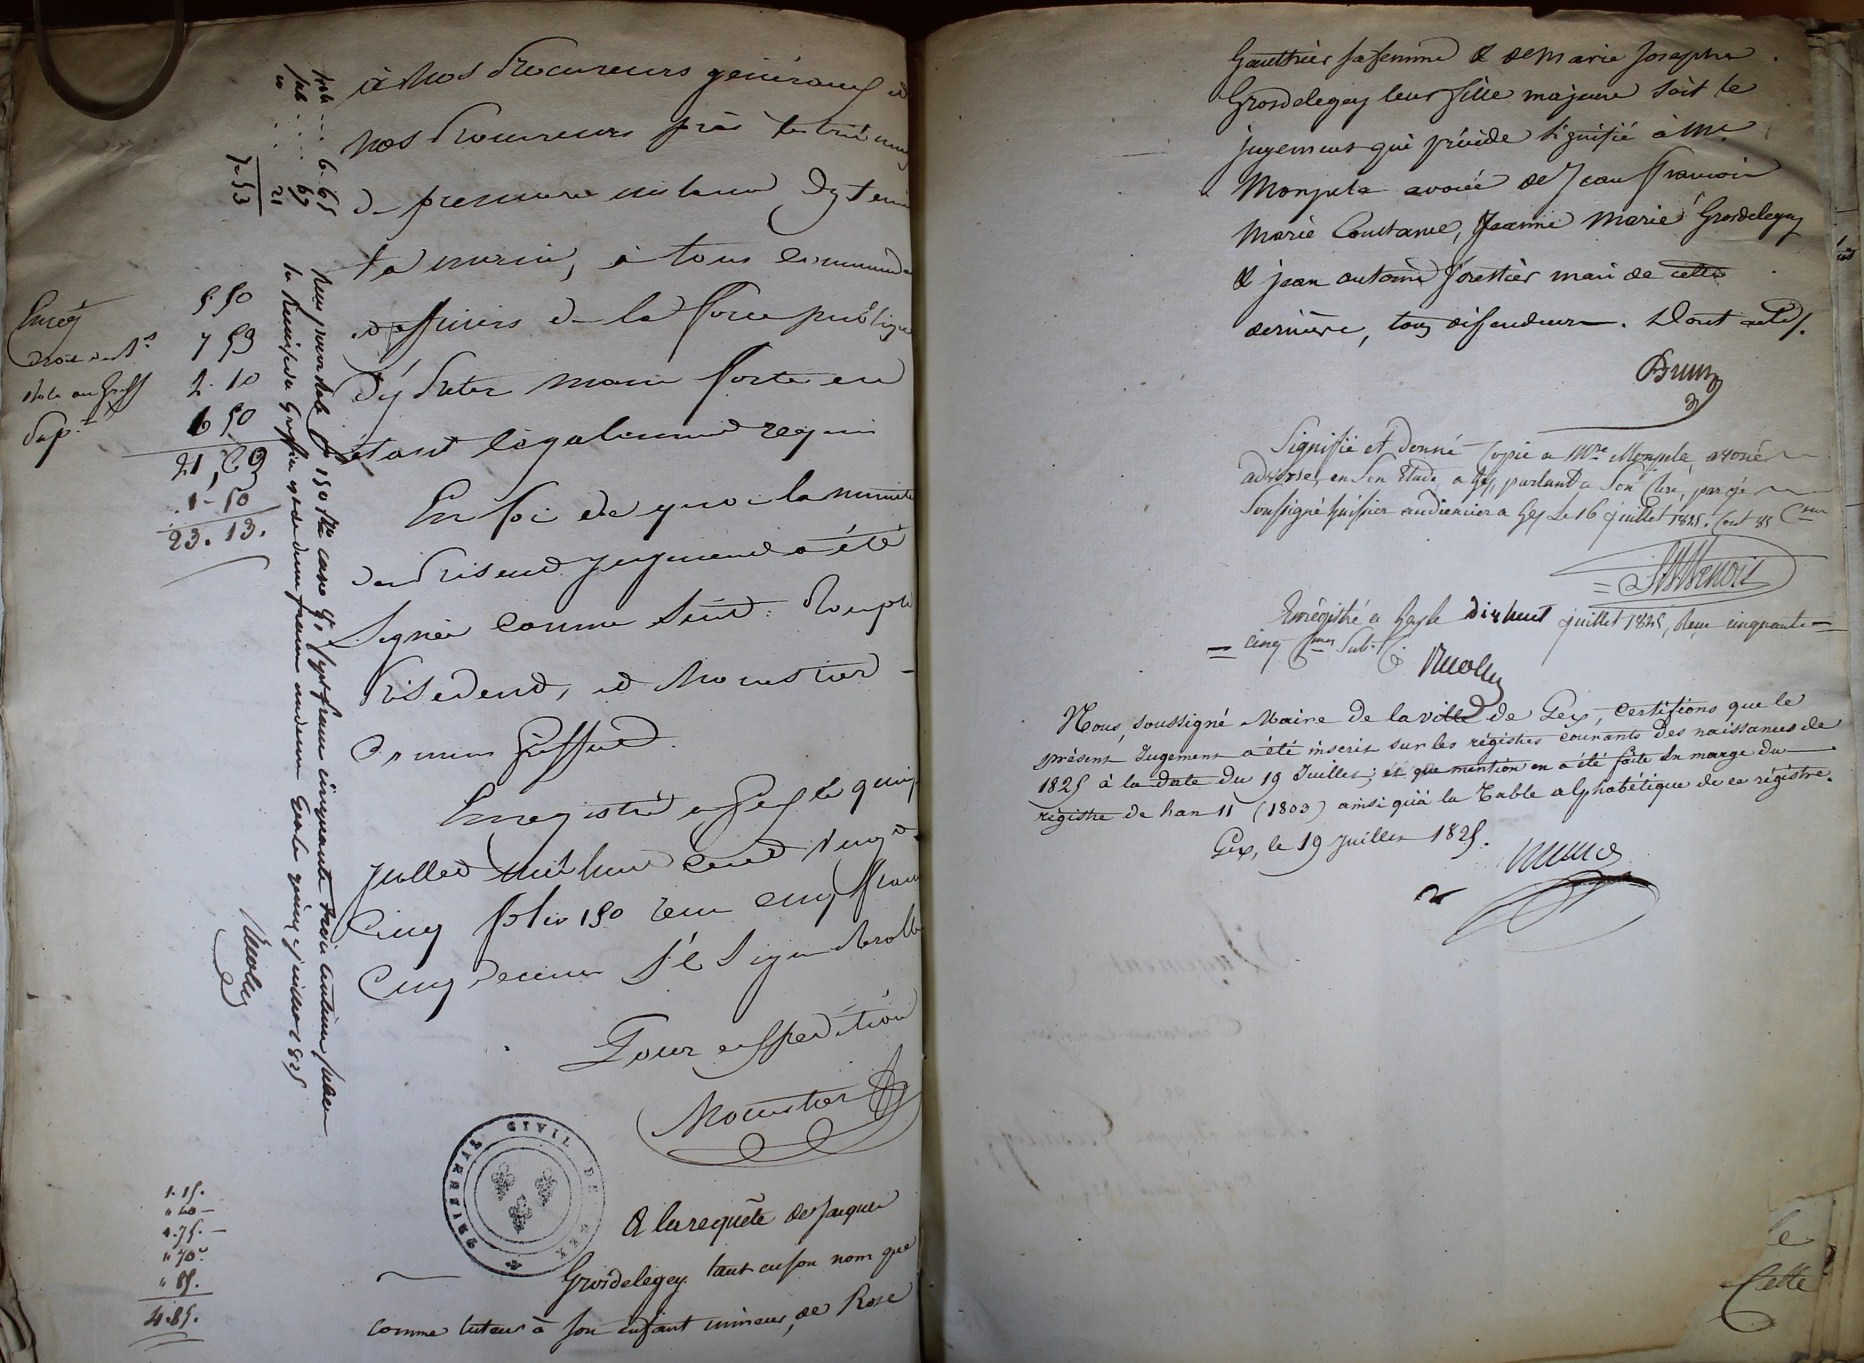 à Nos Procureurs généraux et
nos Procureurs près les tribunaux
de premiere instance d'y tenir
la main, à tous commandants
et officiers de la force publique
d'y prêter main forte en
étant légalement requis
En foi de quoi la minute
du présent jugement a été
signée comme suit: Rouph
Président, et Moustier
commis Greffier.
Enregistré à Gex le quinze
juillet mil huit cent vingt
cinq folio 150 reçu cinq francs
cinq decimes S'é Signé Nicolle
Pour expédition
Moustier
TRIBUNAL CIVIL DE GEX
A la requête de Jacques
Grosdelegey tant en son nom que
comme tuteur à son enfant mineur, de Rose
6. 65
67
21
7.53
Reçu pour sept francs cinquante trois centimes
la Remise du Greffier
juillet 1825
Nicolle
Enreg.
5.50
droit de
7 53
2.10
6 50
21,63
1-50
23.13.
1.15.
" 40-
1.75.-
" 70"
" 85.
4.85.
Gauthier sa femme & de Marie Josephe
Grosdelegey leur fille majeure soit le
jugement qui précède signifié à Me
Monpela avoué de Jean François
Marie Constance, Jeanne Marie Grosdelegey
& jean antoine forestier mari de cette
dernière, tous défendeurs. Dont acte.
Signifié et donné copie a Mtre Monpela, avoué
adverse, en son Etude, a Gex, parlant a son Clerc, par moi
Soussigné huissier audiencier a Gex Le 16 juillet 1825. Cout 85 Cmes
Benoit
Enregistré a Gex le dix huit juillet 1825, Reçu cinquante
cinq Cmes
Nicolle
Nous, soussigné Maire de la ville de Gex, certifions que le
présent Jugement a été inscrit sur les régistres courants des naissances de
1825 à la date du 19 Juillet; et que mention en a été faite en marge du
régistre de l'an 11 (1803) ainsi qu'à la Table alphabétique de ce régistre.
Gex, le 19 Juillet 1825.
le
Cette